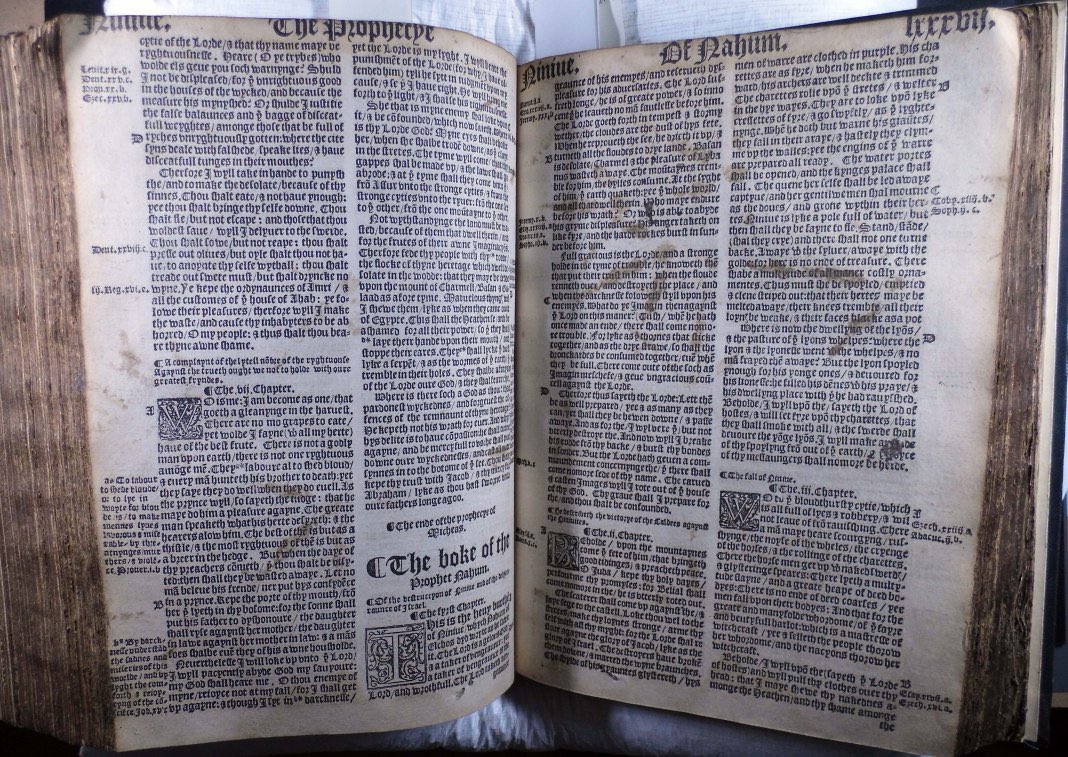 Niniue.
The Prophecye
cytie of the Lorde/& that thy name maye be
ryghtuousnesse. Heare (O ye trybes) who
wolde els geue you soch warnynge: Shuld
I not be displeased/for ẙ vnrightuous good
in the houses of the wycked/and because the
measure his mynyshed: Or shulde I iustifie
the false balaunces and ẙ bagge of disceat-
full weyghtes/ amonge those that be full of
ryches vnryghtuously gotten: where the cite
syns deale with falshede/ speake lies/& haue
disceatfull tunges in their mouthes?
Therfore I wyll take in hande to punysh
the/and to make the desolate/because of thy
synnes. Thou shalt eate/& not haue ynough:
yee thou shalt bringe thy selfe downe. Thou
shalt fle/but not escape: and those that thou
woldest saue/ wyll I delyuer to the swerde.
Thou shalt sowe/but not reape: thou shalt
presse out oliues/but oyle shalt thou not ha-
ue/to anoynte thy selfe wythall: thou shalt
treade out swete must/but shalt dryncke no
wyne. Ye kepe the ordynaunces of Amri / &
all the customes of ẙ house of Ahab: ye fo-
lowe their pleasures/ therfore wyll I make
the waste/and cause thy inhabyters to be ab
horred/O my people: & thus shalt thou bea-
re thyne awne shame.
¶ A complaynt of the lytell nõbre of the ryghtuouse
Agaynst the trueth ought we not to holde with oure
greatest fryndes.
¶ The .vij. Chapter.
WO is me: I am become as one/that
goeth a gleanynge in the haruest.
There are no mo grapes to eate/
yet wolde I fayne (w̃ all my herte)
haue of the best frute. There is not a godly
man vpon earth/there is not one ryghtuous
amõge mẽ. They labour al to shed bloud/
& euery mã hunteth his brother to death: yet
they saye they do well/when they do euell. As
the prynce wyll/so sayeth the iudge: that he
maye do him a pleasure agayne. The greate
man speaketh what his herte desyreth: & the
hearers alow him. The best of thẽ is but as a
thistle/& the most ryghtuous of thẽ is but as
a breer in the hedge. But when the daye of
thy preachers cõmeth/& thou shalt be visy-
ted: then shall they be wasted awaye. Let no
mã beleue his frende/ner put hys confydẽce
in a prynce. Kepe the porte of thy mouth/frõ
her ẙ lyeth in thy bosome: for the sonne shall
put his father to dyshonoure/ the daughter
shall ryse agaynst her mother/the daughter
in lawe agaynst her mother in law: & a mãs
foes shalbe euẽ they of his awne housholde.
Neuerthelesse I will loke vp vnto ẙ Lord/
I wyll pacyently abyde God my sauyoure:
my God shall heare me. O thou enemye of
myne/reioyce not at my fall/for I shall get
vp agayne: & though I syt in darcknesse/
Leuit.xix.g.
Deut.xxv.c.
Prou.xx.b.
Ezec.xxv.b.
D
Deut.xxviij.c
iij.Reg.xvi.c
A
B
yet the Lorde is my lyght. I wyll beare the
punishment of the Lorde (for why/I haue of
fended him) tyll he syt in iudgment vpõ my
cause/& se ẙ I haue right. He wyll brynge me
forth to ẙ light/& I shal se his ryghtuousnes.
is thy Lorde God? Myne eyes shall beholde
her/when she shalbe troden downe/as ẙ claye
in the stretes. The tyme wyll come/that thy
gappes shal be made vp/& the lawe shal go
abrode: & at ẙ tyme shall they come
to ẙ other/frõ the one mountayne to ẙ other.
Not wythstandynge the land must be wa-
sted/because of them that dwell therin/and
for the frutes of their awne Imaginacyõs.
Therfore fede thy people with thy rodde/
the flocke of thyne heretage which dwell de-
solate in the wodde: that they maye be fed
vpon the mount of Charmel/ Basan & Gi-
laad as afore tyme. Maruelous thynges wil
I shewe them/lyke as when they came out
of Egypte. This shall the Heathen se/and be
ashamed for all their power/so ẙ they shall
laye their hande vpon their mouth/ and
stoppe their eares. They shall lycke ẙ dust
lyke a serpẽt/& as the wormes of ẙ earth/
tremble in their holes. They shalbe afrayed
of the Lorde oure God/& they shall feare the.
Where is there soch a God as thou? that
pardonest wyckednes/and forgeuest the of-
fences of the remnaunt of thyne heretage.
He kepeth not his wrath for euer. And why?
hys delite is to haue cõpassiõ: he shall turne
agayne/and be mercyfull to vs: he shall put
downe oure wyckednesses/and cast all oure
synnes in to the botome of ẙ see. Thou shalt
kepe thy trust with Jacob/& thy mercy for
Abraham/ lyke as thou hast sworne vnto
oure fathers longe agoo.
¶ The ende of the prophecye of
Micheas.
¶ The boke of the
Prophet Nahum.
¶ Of the destruccyon of Niniue and of the delyue-
raunce of Israel.
¶ The fyrst Chapter.
THis is the heuy burthen
of Niniue/ which Nahum of
Elchos dyd wryte/as he sawe
it. The Lord is a gelous God/&
a taker of vengeaunce: yee
a taker of vengeaunce is the
Lord/and wrothfull. The Lord
Of Nahum.
lxxxvij.
Niniue.
geaunce of his enemyes/and reserueth dys-
pleasure for his aduersaries. The Lord suf-
freth longe/he is of greate power/& so inno
cent/he leaueth no mã fautlesse before him.
The Lorde goeth forth in tempest & stormy
wether/the cloudes are the dust of hys fete.
Whẽ he reproueth the see/he dryeth it vp/&
turneth all the floudes to drye lande. Basan
is desolate/Charmel & the pleasure of Lyba
nus wasteth awaye. The moũtaynes trem-
ble for him/the hylles consume. At the syght
of him/ẙ earth quaketh: yee ẙ whole world/
and all that dwell therin. Who maye endure
before his wrath? Or who is able to abyde
his grymme displeasure? His anger taketh on
lyke fyre/and the harde rockes burst in sun-
der before him.
Full gracious is the Lorde/and a stronge
holde in the tyme of trouble/he knoweth thẽ
that put their trust in him: when the floude
renneth ouer/and destroyeth the place/ and
when the darcknesse foloweth styll vpon his
enemyes. What do ye Imagin then agaynst
ẙ Lord on this maner? (Tush/ whẽ he hath
once made an ende/there shall come nomo-
re trouble. For lyke as ẙ thornes that sticke
together/and as the drye strawe/so shall the
dronckardes be consumed together/euẽ whẽ
they be full. There come out of the soch as
Imagin myschefe/& geue vngracious coũ-
cell agaynst the Lorde.
Therfore thus sayeth the Lorde: Let thẽ
be as well prepared/yee & as many as they
can/yet shall they be hewen downe/& passe
awaye. And as for the/I wyll vexe ẙ/but not
vtterly destroye the. And now wyll I breake
his rodde frõ thy backe/& burst thy bondes
in sonder. But the Lorde hath geuen a com-
maundement concernynge the/ẙ there shall
come nomore sede of thy name. The carued
& casten Images wyll I rote out of ẙ house
of thy God. Thy graue shall I prepare for
the/and thou shalt be confounded.
¶ He descrybeth the victorye of the Caldees agaynst
the Assirians.
¶ The .ij. Chapter.
BEholde / vpon the mountaynes
come ẙ fete of him/that bringeth
good tidinges/& preacheth peace.
O Juda / kepe thy holy dayes/
perfourme thy promyses: for Belial shall
come nomore in the/he is vtterly roted out.
The scaterer shall come vp agaynst the/&
laye sege to the castell. Loke thou well to the
stretes/make thy loynes stronge/arme thy
selfe with all thy might: for the Lorde shal re
store agayne the glory of Jacob/lyke as the
glory of Israel. The destroyers haue broke
them downe/& marred the wyne braunches.
The shylde of his gyauntes glystereth/ hys
men of warre are clothed in purple. His cha
rettes are as fyre/ when he maketh him for-
ward/his archers are well deckte & trimmed
The charettes rolle vpõ ẙ stretes/& welter
in the hye wayes. They are to loke vpõ lyke
cressettes of fyre/& go swyftly/ as ẙ lighte-
nynge. Whẽ he doth but warne his giaũtes/
they fall in their araye/& hastely they clym-
me vp the walles: yee the engins of ẙ warre
are prepared all ready. The water portes
shall be opened/and the kynges palace shall
fall. The quene her selfe shall be led awaye
captyue/and her gentilwomen shall mourne
as the doues/and grone wythin their her-
tes. Niniue is lyke a pole full of water/ but
then shall they be fayne to fle. Stand/stãde/
(shall they crye) and there shall not one turne
backe. Awaye w̃ the syluer/ awaye with the
golde: for here is no ende of treasure. There
shalbe a multitude of all maner costly orna-
mentes. Thus must she be spoyled/ emptied
& clene striped out: that their hertes maye be
melted awaye/their knees tremble/all their
loynes be weake/& their faces blacke as a pot
Where is now the dwellyng of the lyõs/
& the pasture of ẙ lyons whelpes? where the
lyon & the lyonesse went w̃ the whelpes/& no
mã frayed thẽ awaye? But the lyon spoyled
ynough for his yonge ones/ & deuoured for
his lionesse: he filled his dẽnes w̃ his praye/&
his dwellyng place with ẙ he had rauyshed.
Beholde/I wyll vpõ the/ sayeth the Lord of
hostes/& will set fyre vpõ thy charettes/that
they shall smoke with all/& the swerde shall
deuoure thy yõge lyõs. I wyll make an ende
of thy spoylyng frõ out of ẙ earth/& ẙ voyce
of thy messaungers shall nomore be herde.
¶ The fall of Niniue.
¶ The .iij. Chapter.
WO to ẙ bloudthursty cytie/which
is all full of lyes & robbery/& wil
not leaue of frõ rauyshing. There
a mã maye heare scourgyng/rus-
shynge/the noyse of the wheles/the cryenge
of the horses/& the rollinge of the charettes.
There the horsmen get vp w̃ naked swerds/
& glysteringe speares: There lyeth a multy-
tude slayne/and a greate heape of deed bo-
dyes: There is no ende of deed coarses/ yee
men fall vpon their bodyes: And that for the
greate and manyfolde whordome/ of ẙ fayre
and beutyfull harlot: which is a mastres of
wytchcraft/ yee & selleth the people thorow
her whordome/and the nacyons thorow her
witchcraft.
Beholde/ I wyll vpõ the (sayeth ẙ Lorde
of hostes) and wyll pull thy clothes ouer thy
head: that I maye shewe thy nakednes a-
monge the Heathen/and thy shame amonge
the
Toby.xiij.b.
Soph.ij.c.
D
Ezech.xxiiij.a
Abacuc.ij.b.
B
Esay.xlvij.a.
Ezech.xvi.e.